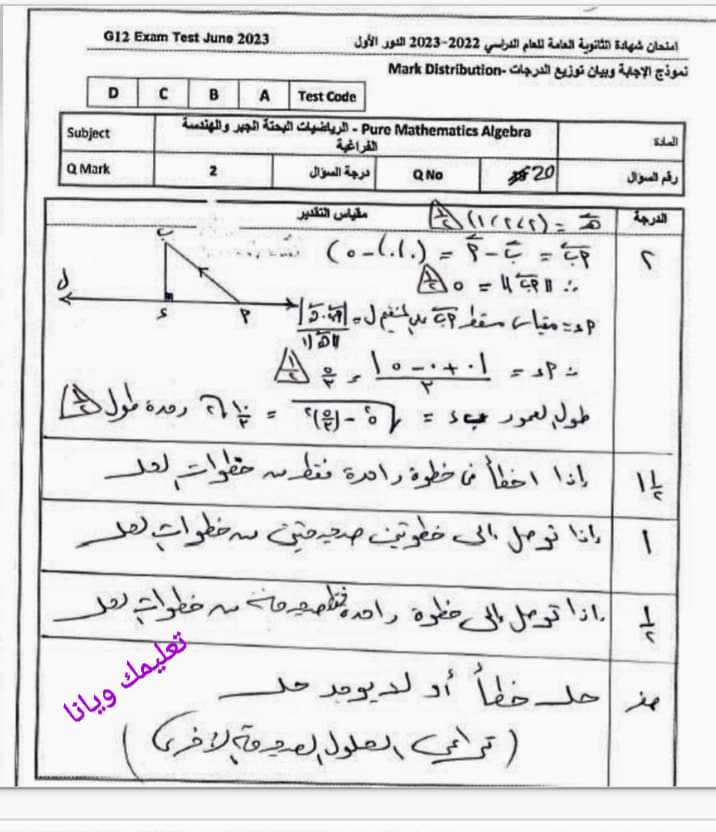 G12 Exam Test June 2023
امتحان شهادة الثانوية العامة للعام الدراسي 2022-2023 الدور الأول
نموذج الإجابة وبيان توزيع الدرجات -Mark Distribution
D C B A Test Code
Subject
الرياضيات البحتة الجبر والهندسة - Pure Mathematics Algebra
الفراغية
المادة
Q Mark 2 درجة السؤال Q No 20 رقم السؤال
الدرجة
مقياس التقدير
هـ = (٢، ٢، ١)
٢
أب = ب - أ = (٠، ٠، -٥)
∴ ||أب|| = ٥
ل
ب
ء
أ
أء = مقياس مسقط أب على المستقيم ل =
∴ أء = |٠ + ٠ - ٥| / ٣ = ٥/٣
طول العمود ب ء = = ١٠/٣ √٢ وحدة طول
١ ١/٢
إذا أخطأ في خطوة واحدة فقط من خطوات الحل
١
إذا توصل إلى خطوتين صحيحتين من خطوات الحل
١/٢
إذا توصل إلى خطوة واحدة فقط صحيحة من خطوات الحل
صفر
حل خطأ أو لا يوجد حل
(تراعى الحلول الصحيحة الأخرى)
تعليمك ويانا